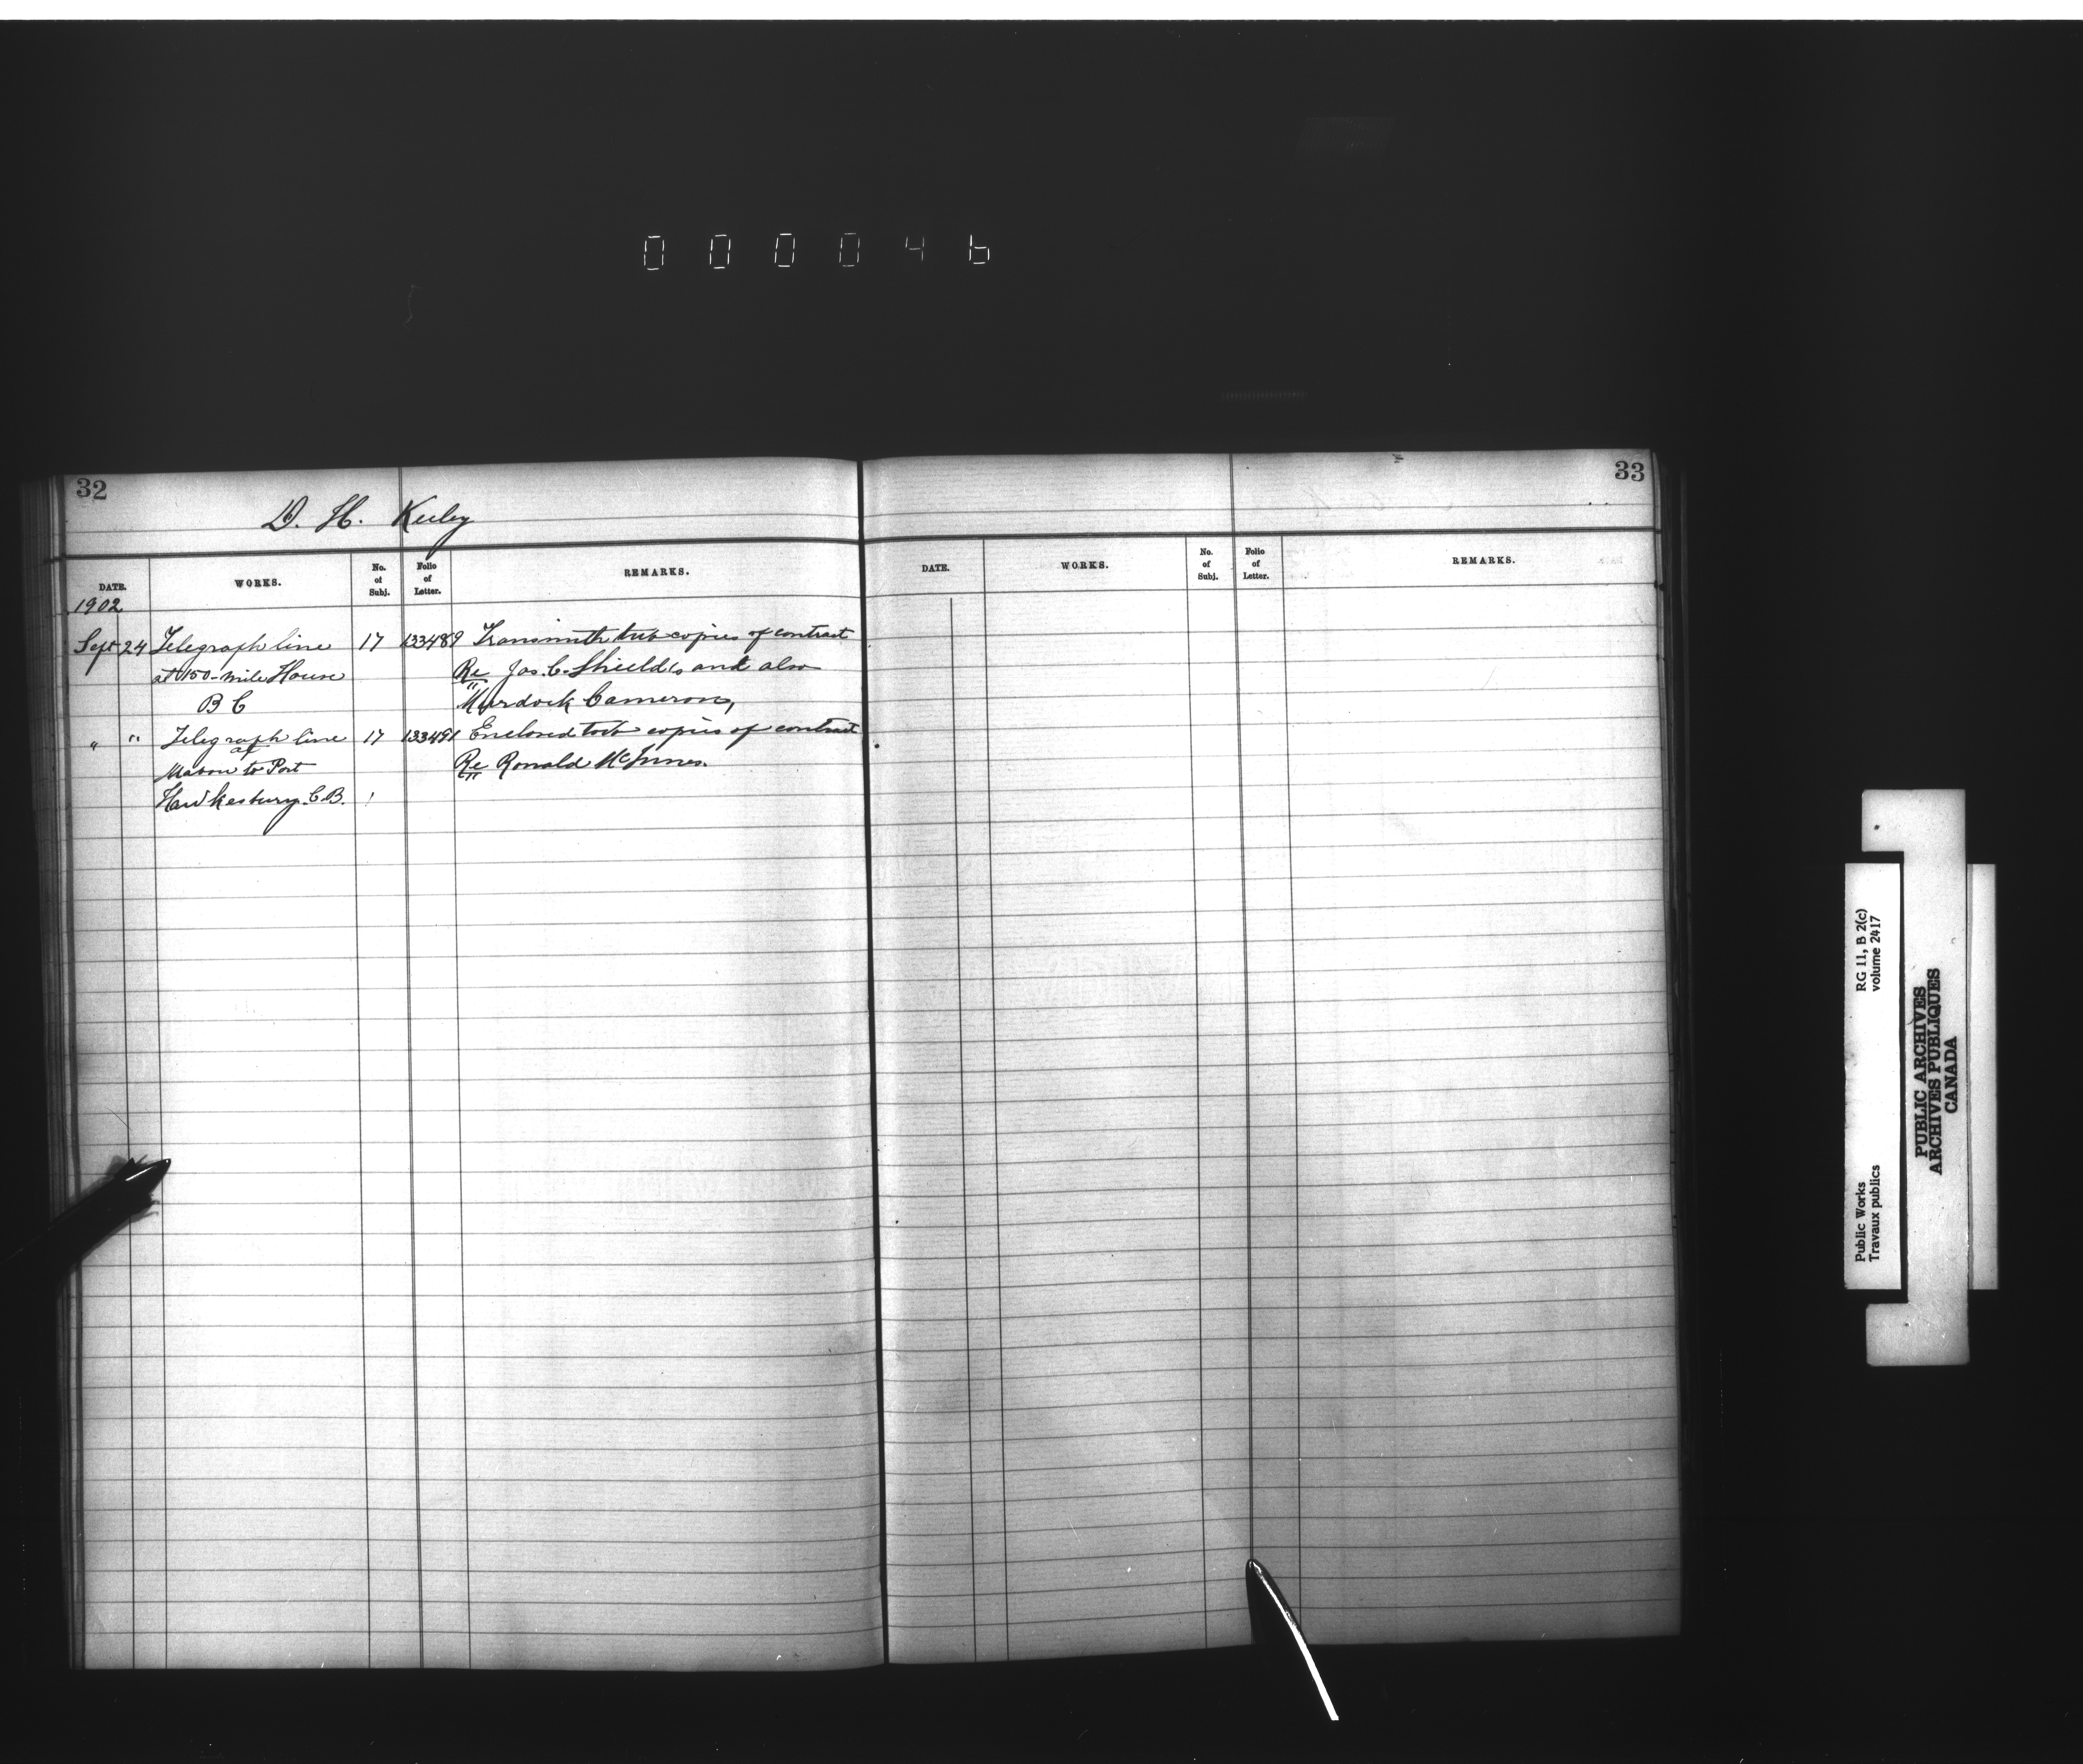 000046
32
D. H. Keeley
DATE. WORKS. No. of Subj. Folio of Letter. REMARKS.
1902
Sept 24 Telegraph line 17 133489 Transmitts two copies of contract
at 150-mile House Re Jas. C. Shields and also
B C Murdock Cameron,
" " Telegraph line 17 133491 Enclosed two copies of contract
of
Mabou to Port Re Ronald McInnes.
Hawkesbury C.B.
33
DATE. WORKS. No. of Subj. Folio of Letter. REMARKS.
Public Works RG 11, B 2(c)
Travaux publics volume 2417
PUBLIC ARCHIVES
ARCHIVES PUBLIQUES
CANADA